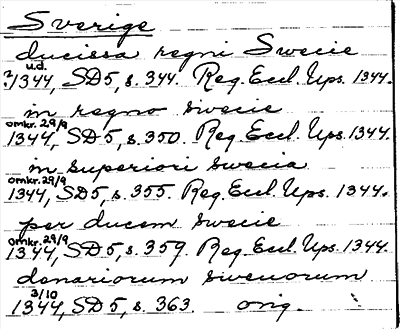 Sverige
ducissa regni Swecie
u.d.
?1344, SD5, s. 344. Reg. Eccl. Ups. 1344.
in regno swecie
omkr. 29/9
1344, SD5, s. 350. Reg. Eccl. Ups. 1344.
in superiori swecia
omkr. 29/9
1344, SD5, s. 355. Reg. Eccl. Ups. 1344.
per ducem swecie
omkr. 29/9
1344, SD5, s. 359. Reg. Eccl. Ups. 1344.
denariorum swenorum
3/10
1344, SD5, s. 363. orig.